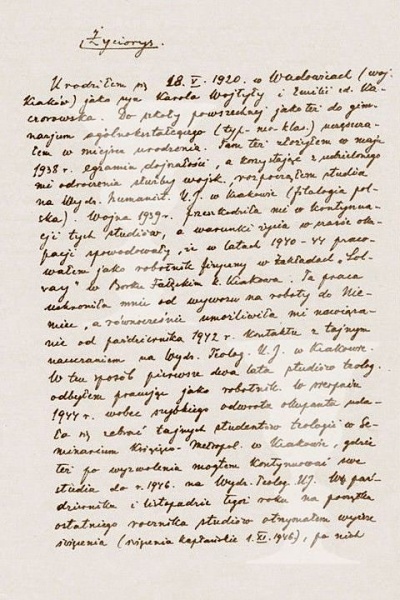 Życiorys.
Urodziłem się 18. V. 1920. w Wadowicach (woj.
Kraków) jako syn Karola Wojtyły i Emilii z d. Ka-
czorowska. Do szkoły powszechnej jako też do gim-
nazjum ogólnokształcącego (typ. neo-klas.) uczęszcza-
łem w miejscu urodzenia. Tam też złożyłem w maju
1938 r. egzamin dojrzałości, a korzystając z udzielonego
mi odroczenia służby wojsk., rozpocząłem studia
na Wydz. Humanist. U.J. w Krakowie (filologia pol-
ska). Wojna 1939 r. przeszkodziła mi w kontynua-
cji tych studiów, a warunki życia w czasie oku-
pacji spowodowały, że w latach 1940-44 praco-
wałem jako robotnik fizyczny w zakładach „Sol-
vay" w Borku Fałęckim k. Krakowa. Ta praca
uchroniła mnie od wywozu na roboty do Nie-
miec, a równocześnie umożliwiła mi nawiąza-
nie od października 1942 r. kontaktu z tajnym
nauczaniem na Wydz. Teolog. U.J. w Krakowie.
W ten sposób pierwsze dwa lata studiów teolog.
odbyłem pracując jako robotnik. W sierpniu
1944 r. wobec szybkiego odwrotu okupanta uda-
ło się zebrać tajnych studentów teologii w Se-
minarium Książęco-Metropol. w Krakowie, gdzie
też po wyzwoleniu mogłem kontynuować swe
studia do r. 1946. na Wydz. Teolog. U.J. W paź-
dzierniku i listopadzie tegoż roku na początku
ostatniego rocznika studiów otrzymałem wyższe
święcenia (święcenia kapłańskie 1. XI. 1946), po nich